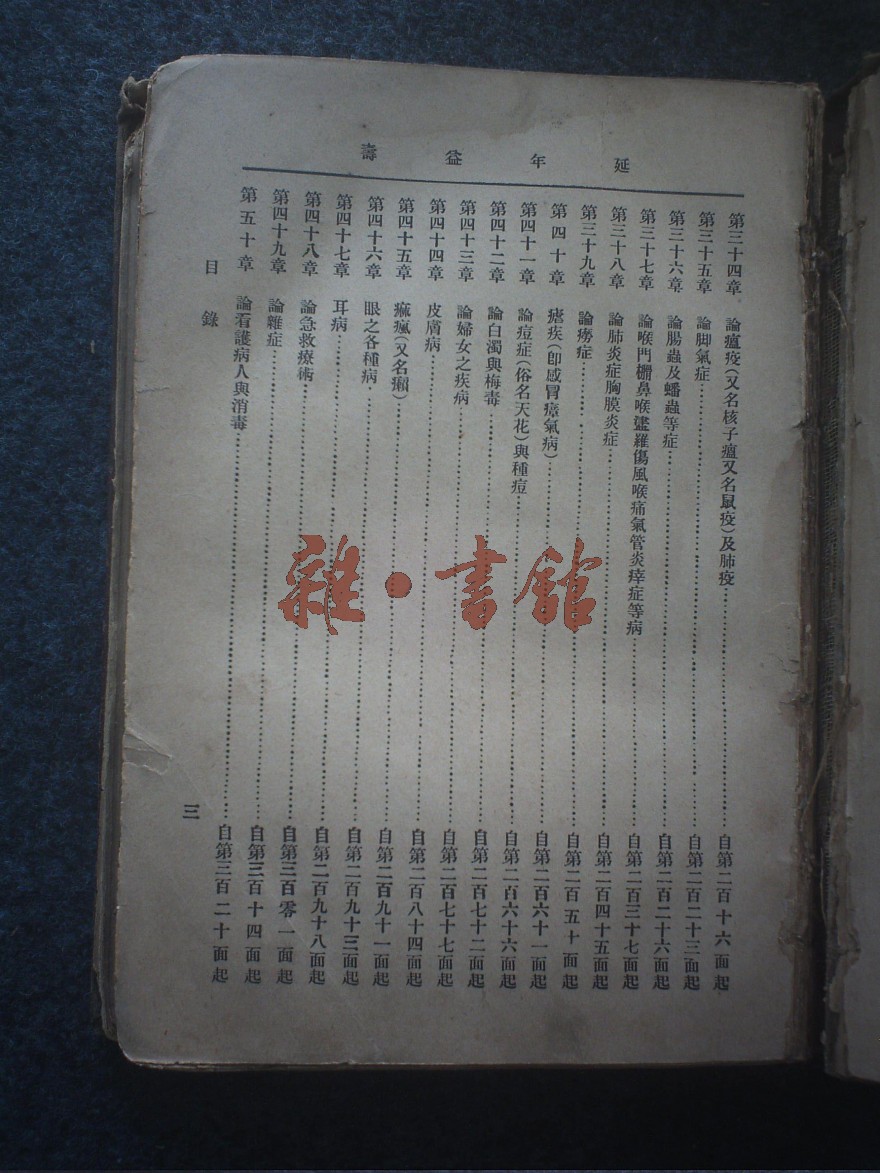 延年益壽
第三十四章 論瘟疫(又名核子瘟又名鼠疫)及肺疫……自第二百十六面起
第三十五章 論脚氣症……自第二百二十三面起
第三十六章 論腸蟲及蟠蟲等症……自第二百二十六面起
第三十七章 論喉門栅鼻喉盪羅傷風喉痛氣管炎痒症等病……自第二百三十七面起
第三十八章 論肺炎症胸膜炎症……自第二百四十五面起
第三十九章 論癆症……自第二百五十面起
第四十章 瘧疾(卽感冒瘴氣病)……自第二百六十一面起
第四十一章 論痘症(俗名天花)與種痘……自第二百六十六面起
第四十二章 論白濁與梅毒……自第二百七十二面起
第四十三章 論婦女之疾病……自第二百七十七面起
第四十四章 皮膚病……自第二百八十四面起
第四十五章 痲瘋(又名癩)……自第二百九十一面起
第四十六章 眼之各種病……自第二百九十三面起
第四十七章 耳病……自第二百九十八面起
第四十八章 論急救療術……自第三百零一面起
第四十九章 論雜症……自第三百十四面起
第五十章 論看護病人與消毒……自第三百二十面起
目錄
三
雜·書館